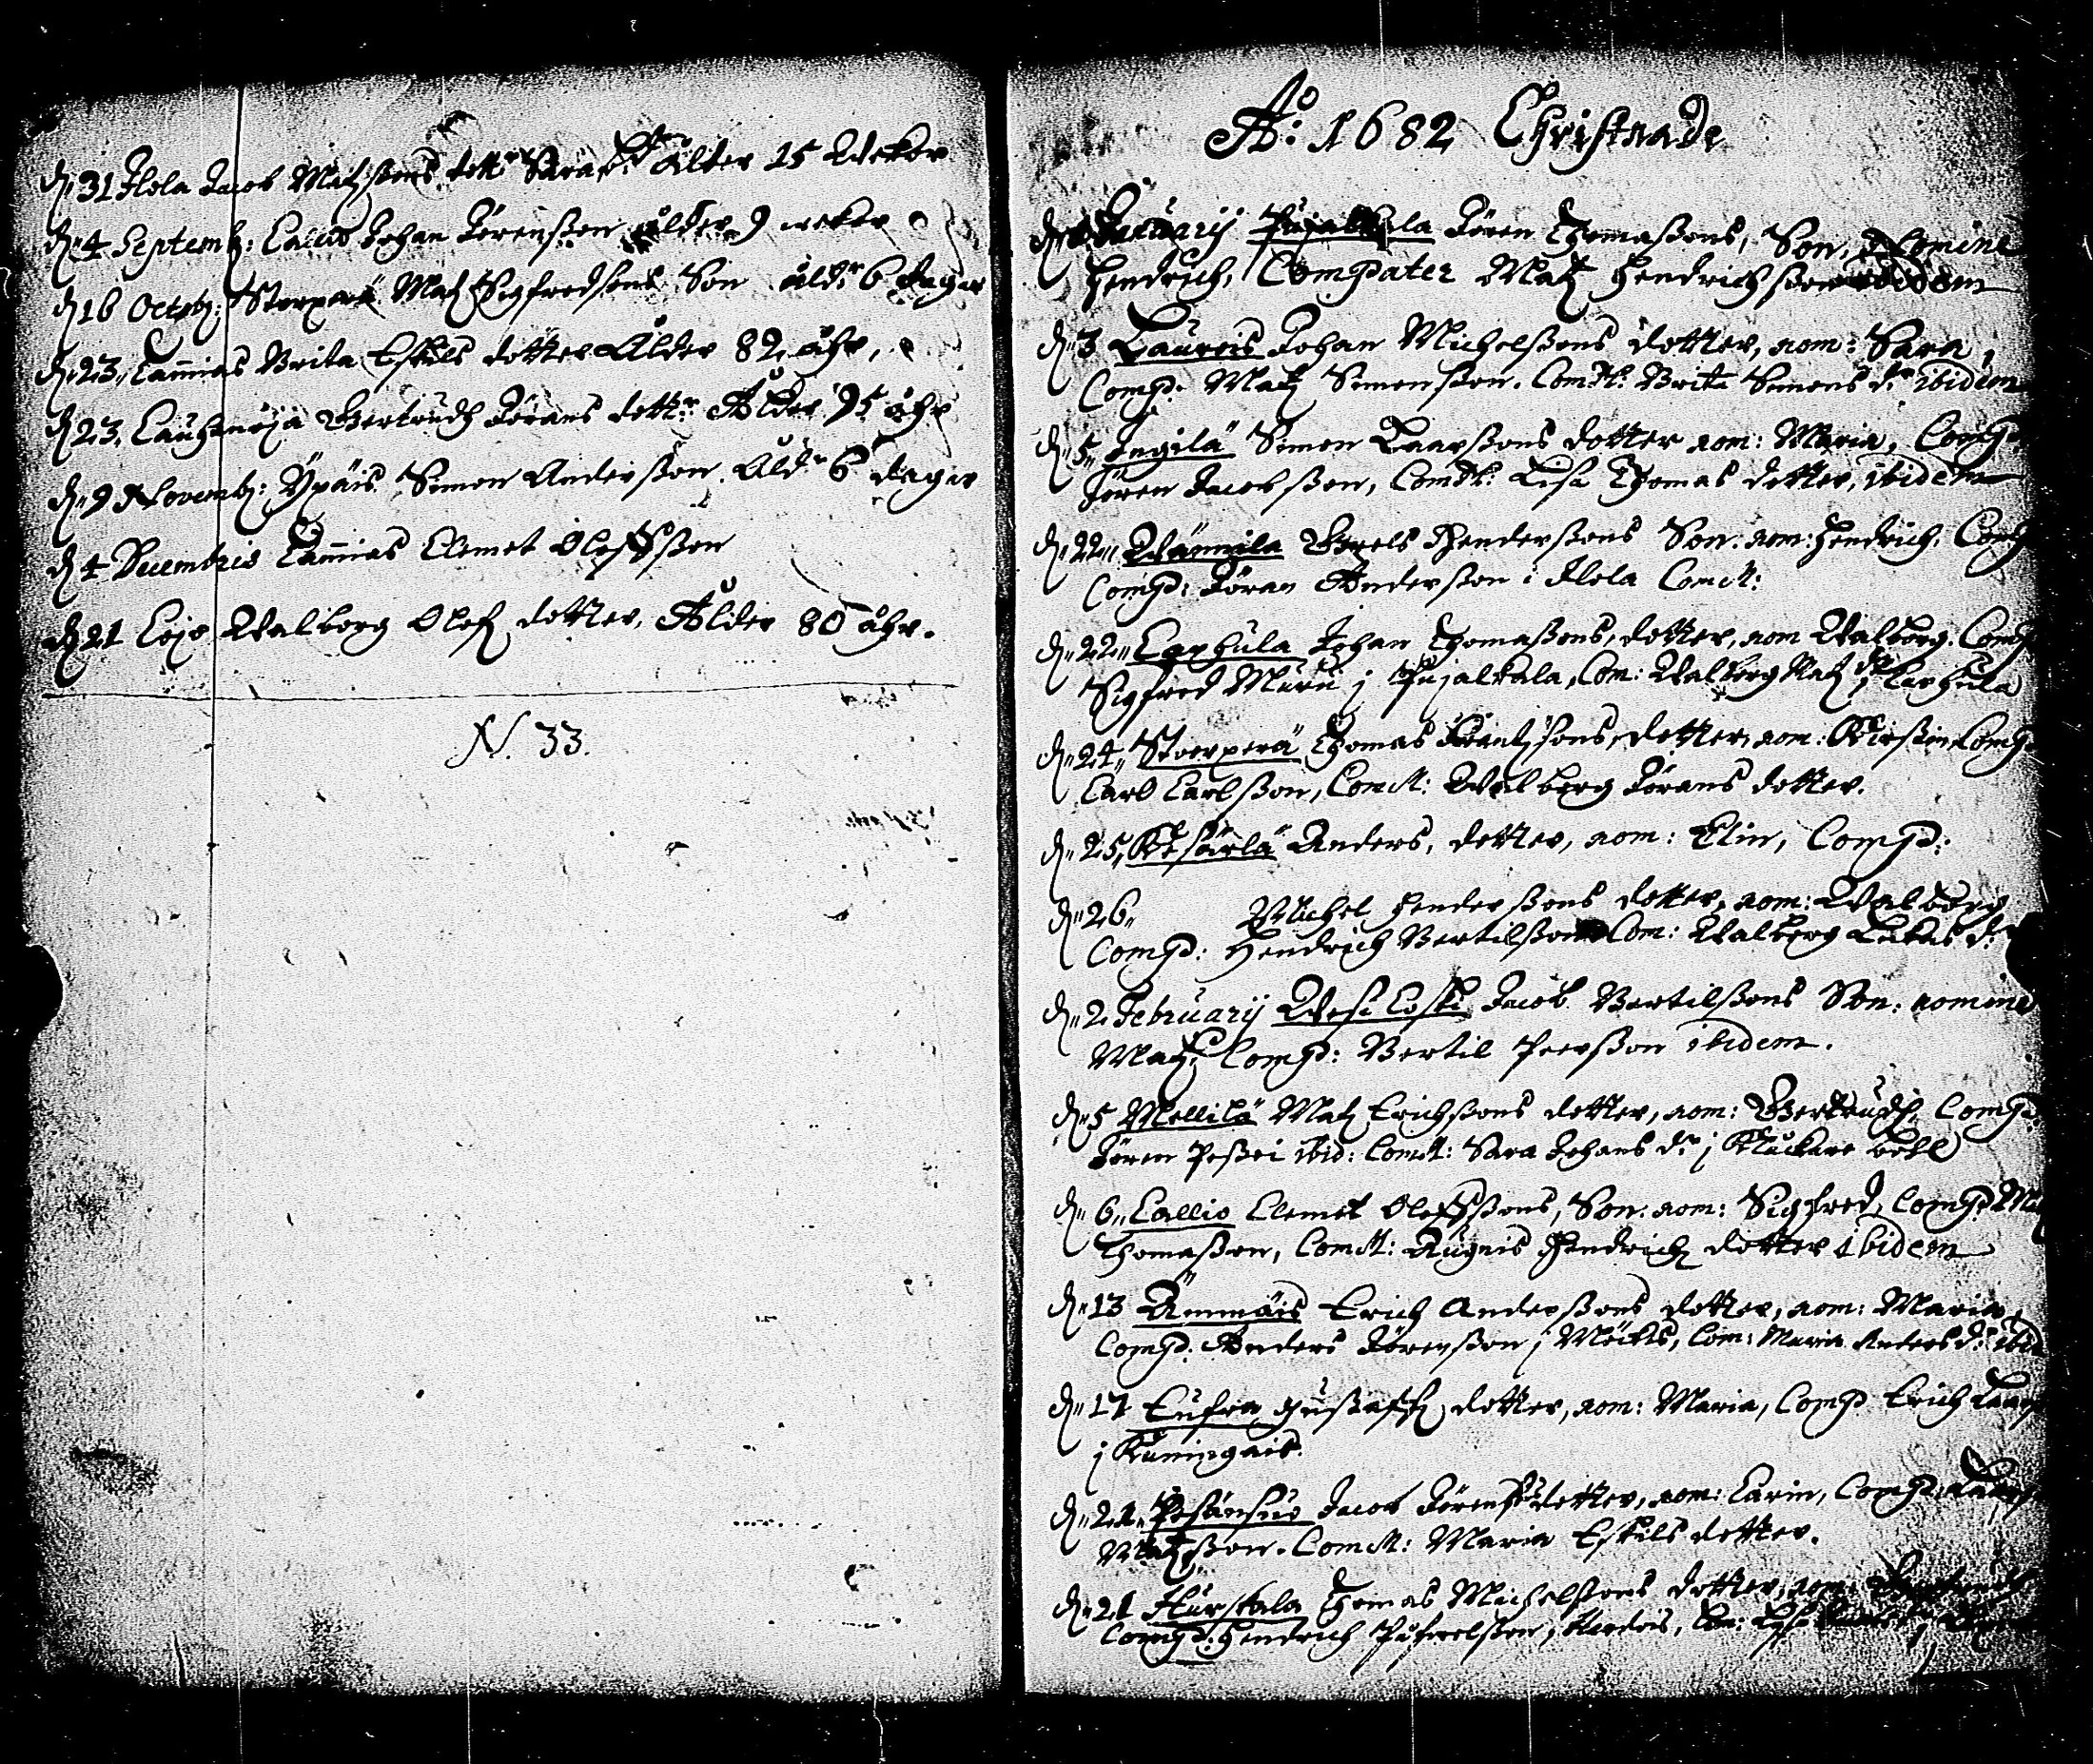 d. 31 Ilola Jacob Matzsons dottr Sara Ålder 15 Wekor
d. 4 Septemb: Johan Jörensson ålder 9 wekor
d. 16 Octob: Storperä Matz Sigfredsons Son åldr 6 dagar
d. 23, Lammias Brita Eskils dotter Ålder 82 åhr,
d. 23, Lauhanoja Gertrudh Jörans dottr Ålder 95 åhr
d. 9 Novemb: Ypäis Simon Andersson Åldr 6 dagar
d. 4 Decembris Lammias Clemet Oleffsson
d. 21 Lojo Walborg Olefz dotter, Ålder 80 åhr.
N. 33.
Ao: 1682 Christnade
Januarij Pujalkala Jören Thomassons, Son, Nomine
Hendrich, Compater Matz Hendrichsson ibidem
d. 3 Laurois Johan Michelssons dotter, nom: Sara,
Comp. Matz Simonsson. ComM: Brita Simons dr ibidem
d. 5 Ingilä Simon Laarssons dotter nom: Maria, Comp.
Jören Jacobsson, ComM: Lisa Thomas dotter, ibidem
d. 22 Wännilä Hendersons Son: nom: Hendrich, Comp
Comp: Jöran Andersson i Ilola ComM:
d. 22 Laphula Johan Thomassons, dotter, nom Walborg. Comp
Sigfred Muru j Pujalkala, Com: Walborg Matz dr j Laphula
d. 24 Storperä Thomas Frantzsons, dotter, nom: Kirstin Comp.
Carl Carlsson, ComM: Walborg Jörans dotter.
d. 25, Kesärlä Anders, dotter, nom: Elin, Comp:
d. 26 Michel Henderssons dotter, nom: Walborg
Comp: Hendrich Bertilsson Com: Walborg Lukas dr
d. 2 Februarij Wesi Coski Jacob Bertilssons Son: nomine
Matz, Comp: Bertil Peersson ibidem.
d. 5 Mellilä Matz Erichssons dotter, nom: Gertrudh, Comp:
Jören Possoi ibid: ComM: Sara Johans dr j Kluckare bohl
d. 6 Callio Clemet Oleffssons, Son: nom: Sigfred, Comp: Matz
Thomasson, ComM: Augnis Hendrichz dotter ibidem
d. 13 Ämmäis Erich Anderssons dotter, nom: Maria,
Comp: Anders Jörensson j Möckis, Com: Maria Anders dr ibid
d. 17 Eufra Gustaffz dotter, nom: Maria, Comp Erich
j Kuningais.
d. 21 Pesänsuo Jacob Jörens dotter, nom: Carin, Comp:
Matzsson. ComM: Maria Eskils dotter.
d. 21 Hurskala Thomas Michelssons dotter, nom:
Comp: Hendrich